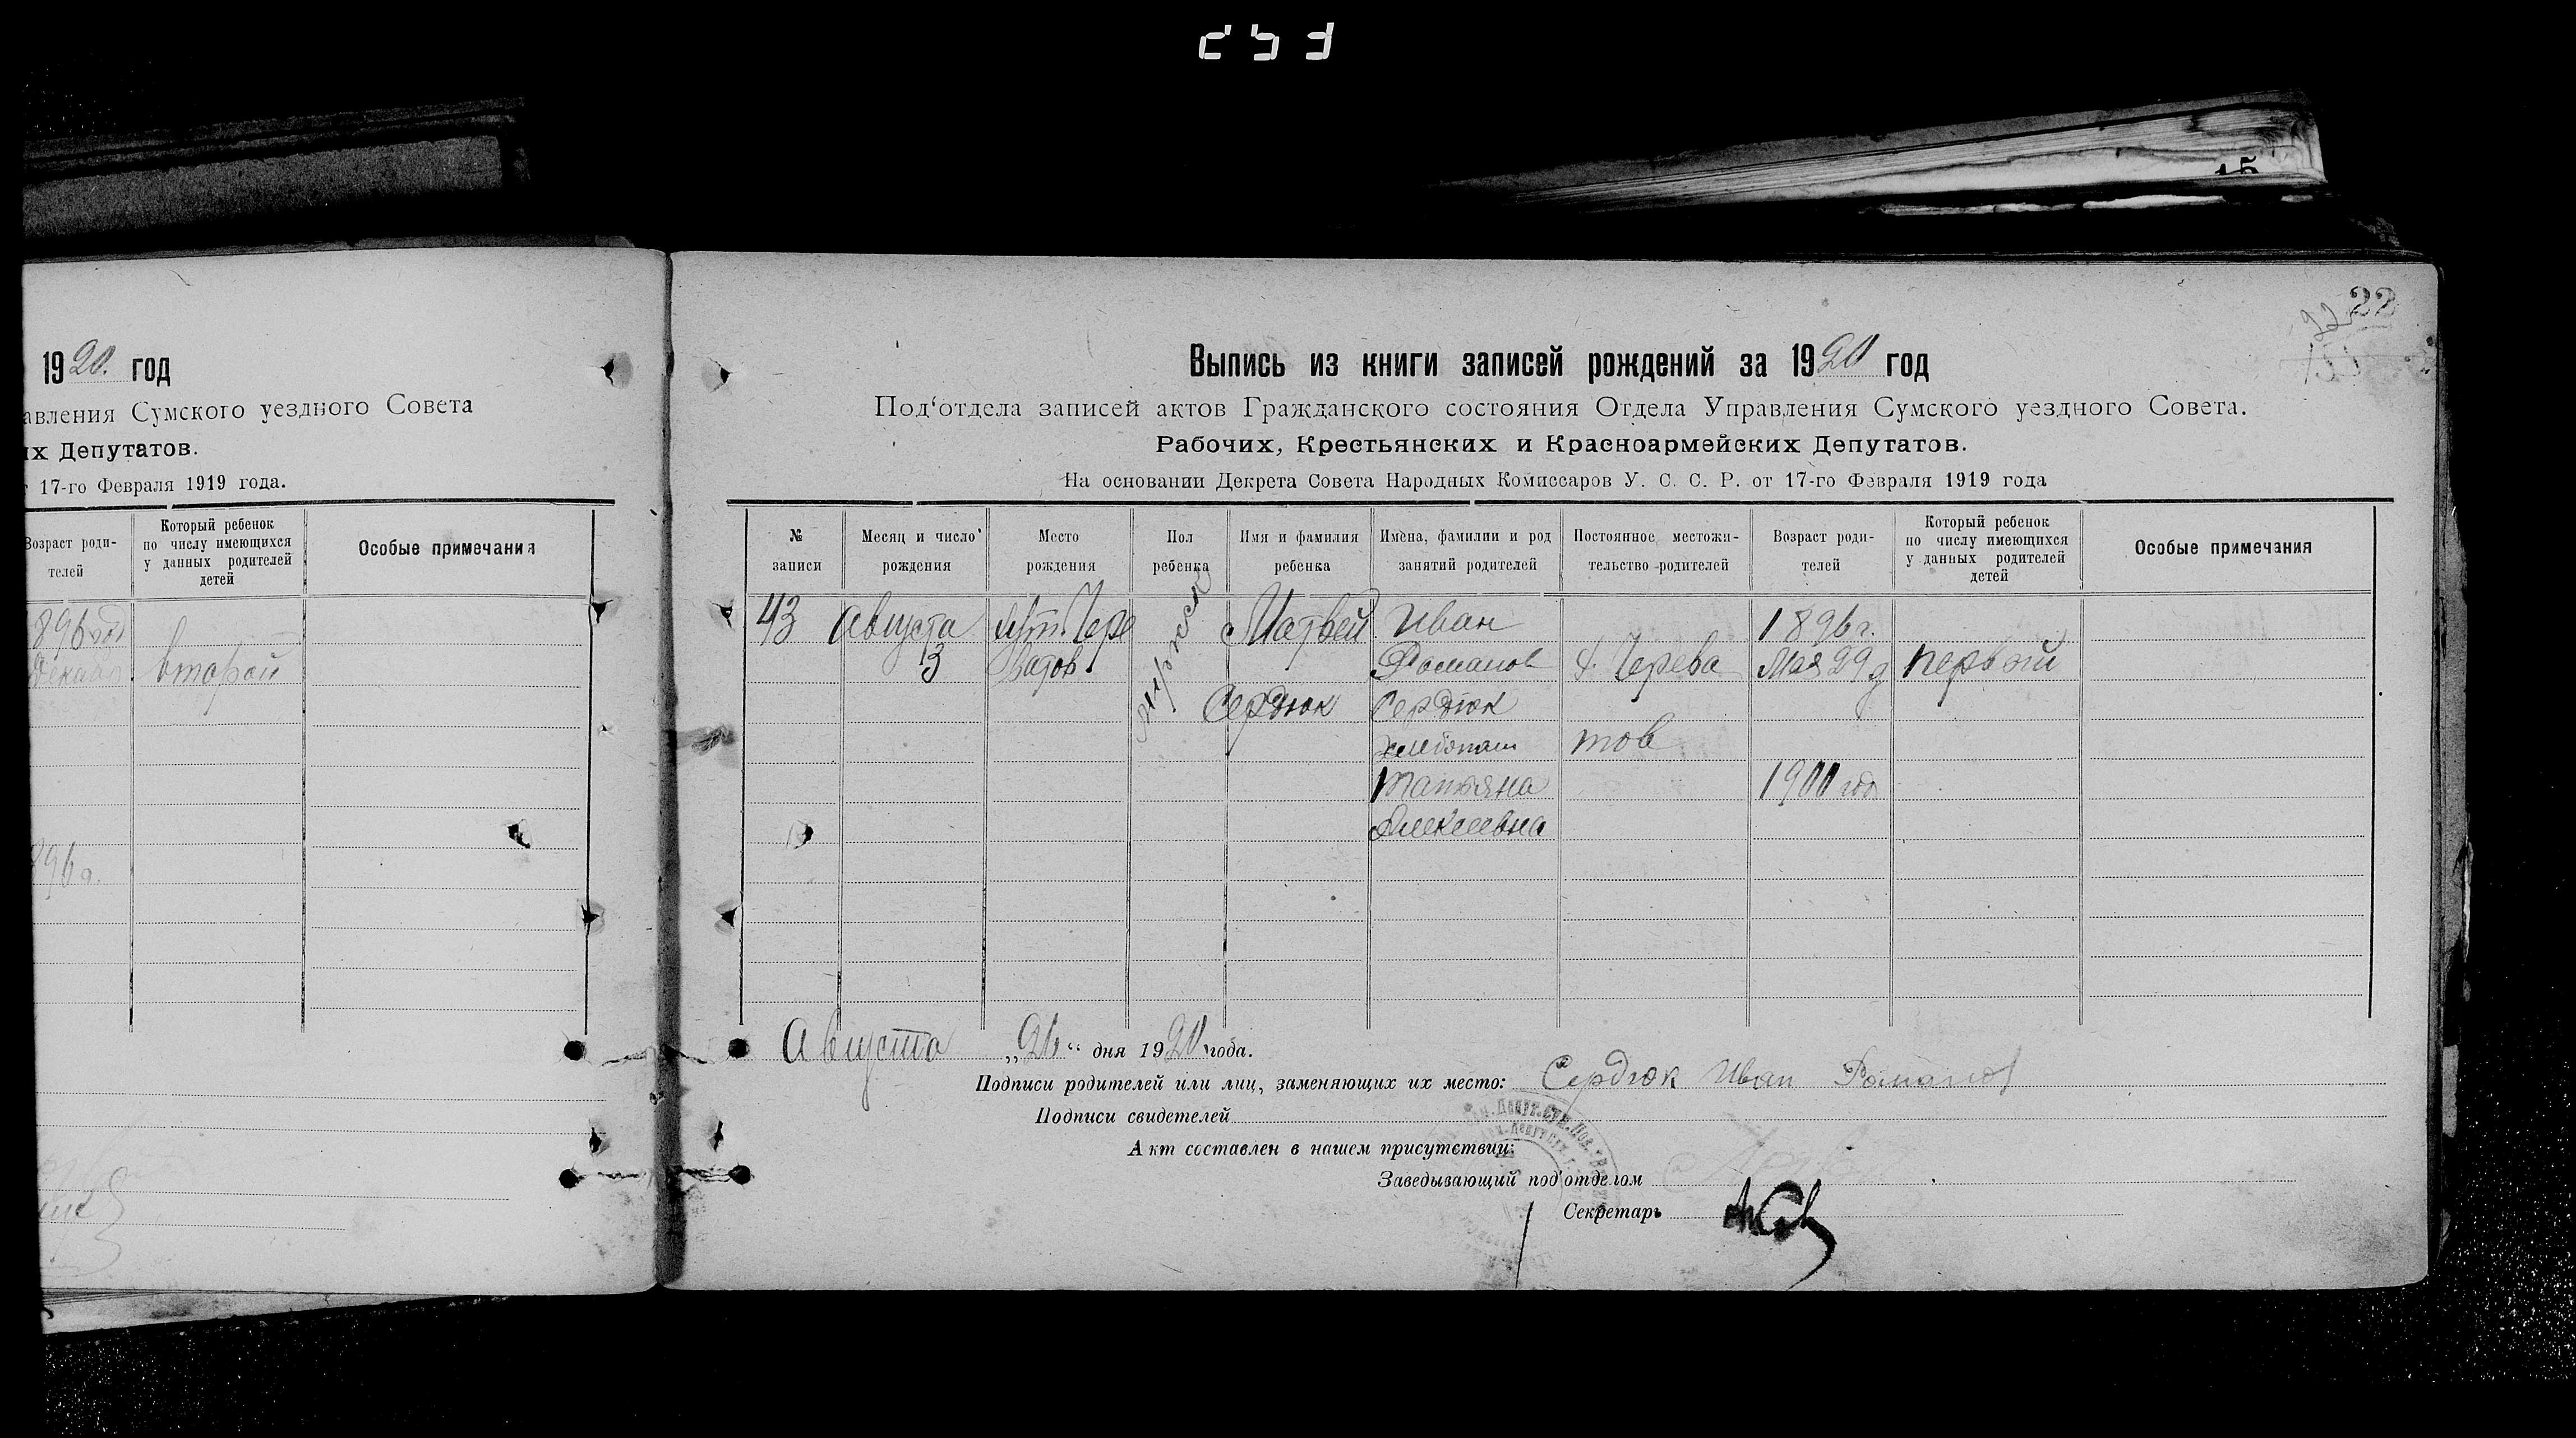 1920. год
авления Сумского уездного Совета
их Депутатов.
17-го Февраля 1919 года.
Возраст роди-
телей
Который ребенок
по числу имеющихся
у данных родителей
детей
Особые примечания
896
второй
896
22
22
Выпись из книги записей рождений за 1920 год
Под‘отдела записей актов Гражданского состояния Отдела Управления Сумского уездного Совета.
Рабочих, Крестьянских и Красноармейских Депутатов.
На основании Декрета Совета Народных Комиссаров У. С. С. Р. от 17-го Февраля 1919 года
№
записи
Месяц и число
рождения
Место
рождения
Пол
ребенка
Имя и фамилия
ребенка
Имена, фамилии и род
занятий родителей
Постоянное местожи-
тельство родителей
Возраст роди-
телей
Который ребенок
по числу имеющихся
у данных родителей
детей
Особые примечания
43
Августа
3
Чере
ватов
мужеск
Матвей
Сердюк
Иван
Романов
Сердюк
хлебопаш
Татьяна
Алексеевна
Черева
тов
1896 г.
Мая 29 д
1900 год
первый
Августа „26“ дня 1920 года.
Подписи родителей или лиц, заменяющих их место: Сердюк Иван Романов
Подписи свидетелей
Акт составлен в нашем присутствии:
Заведывающий под‘отделом
Секретарь